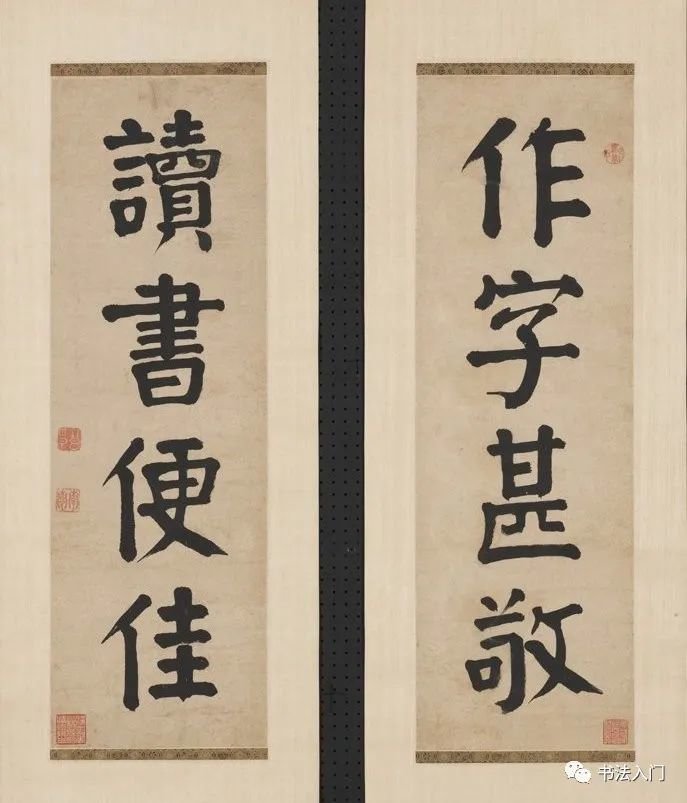 作字甚敬
讀書便佳
书法入门